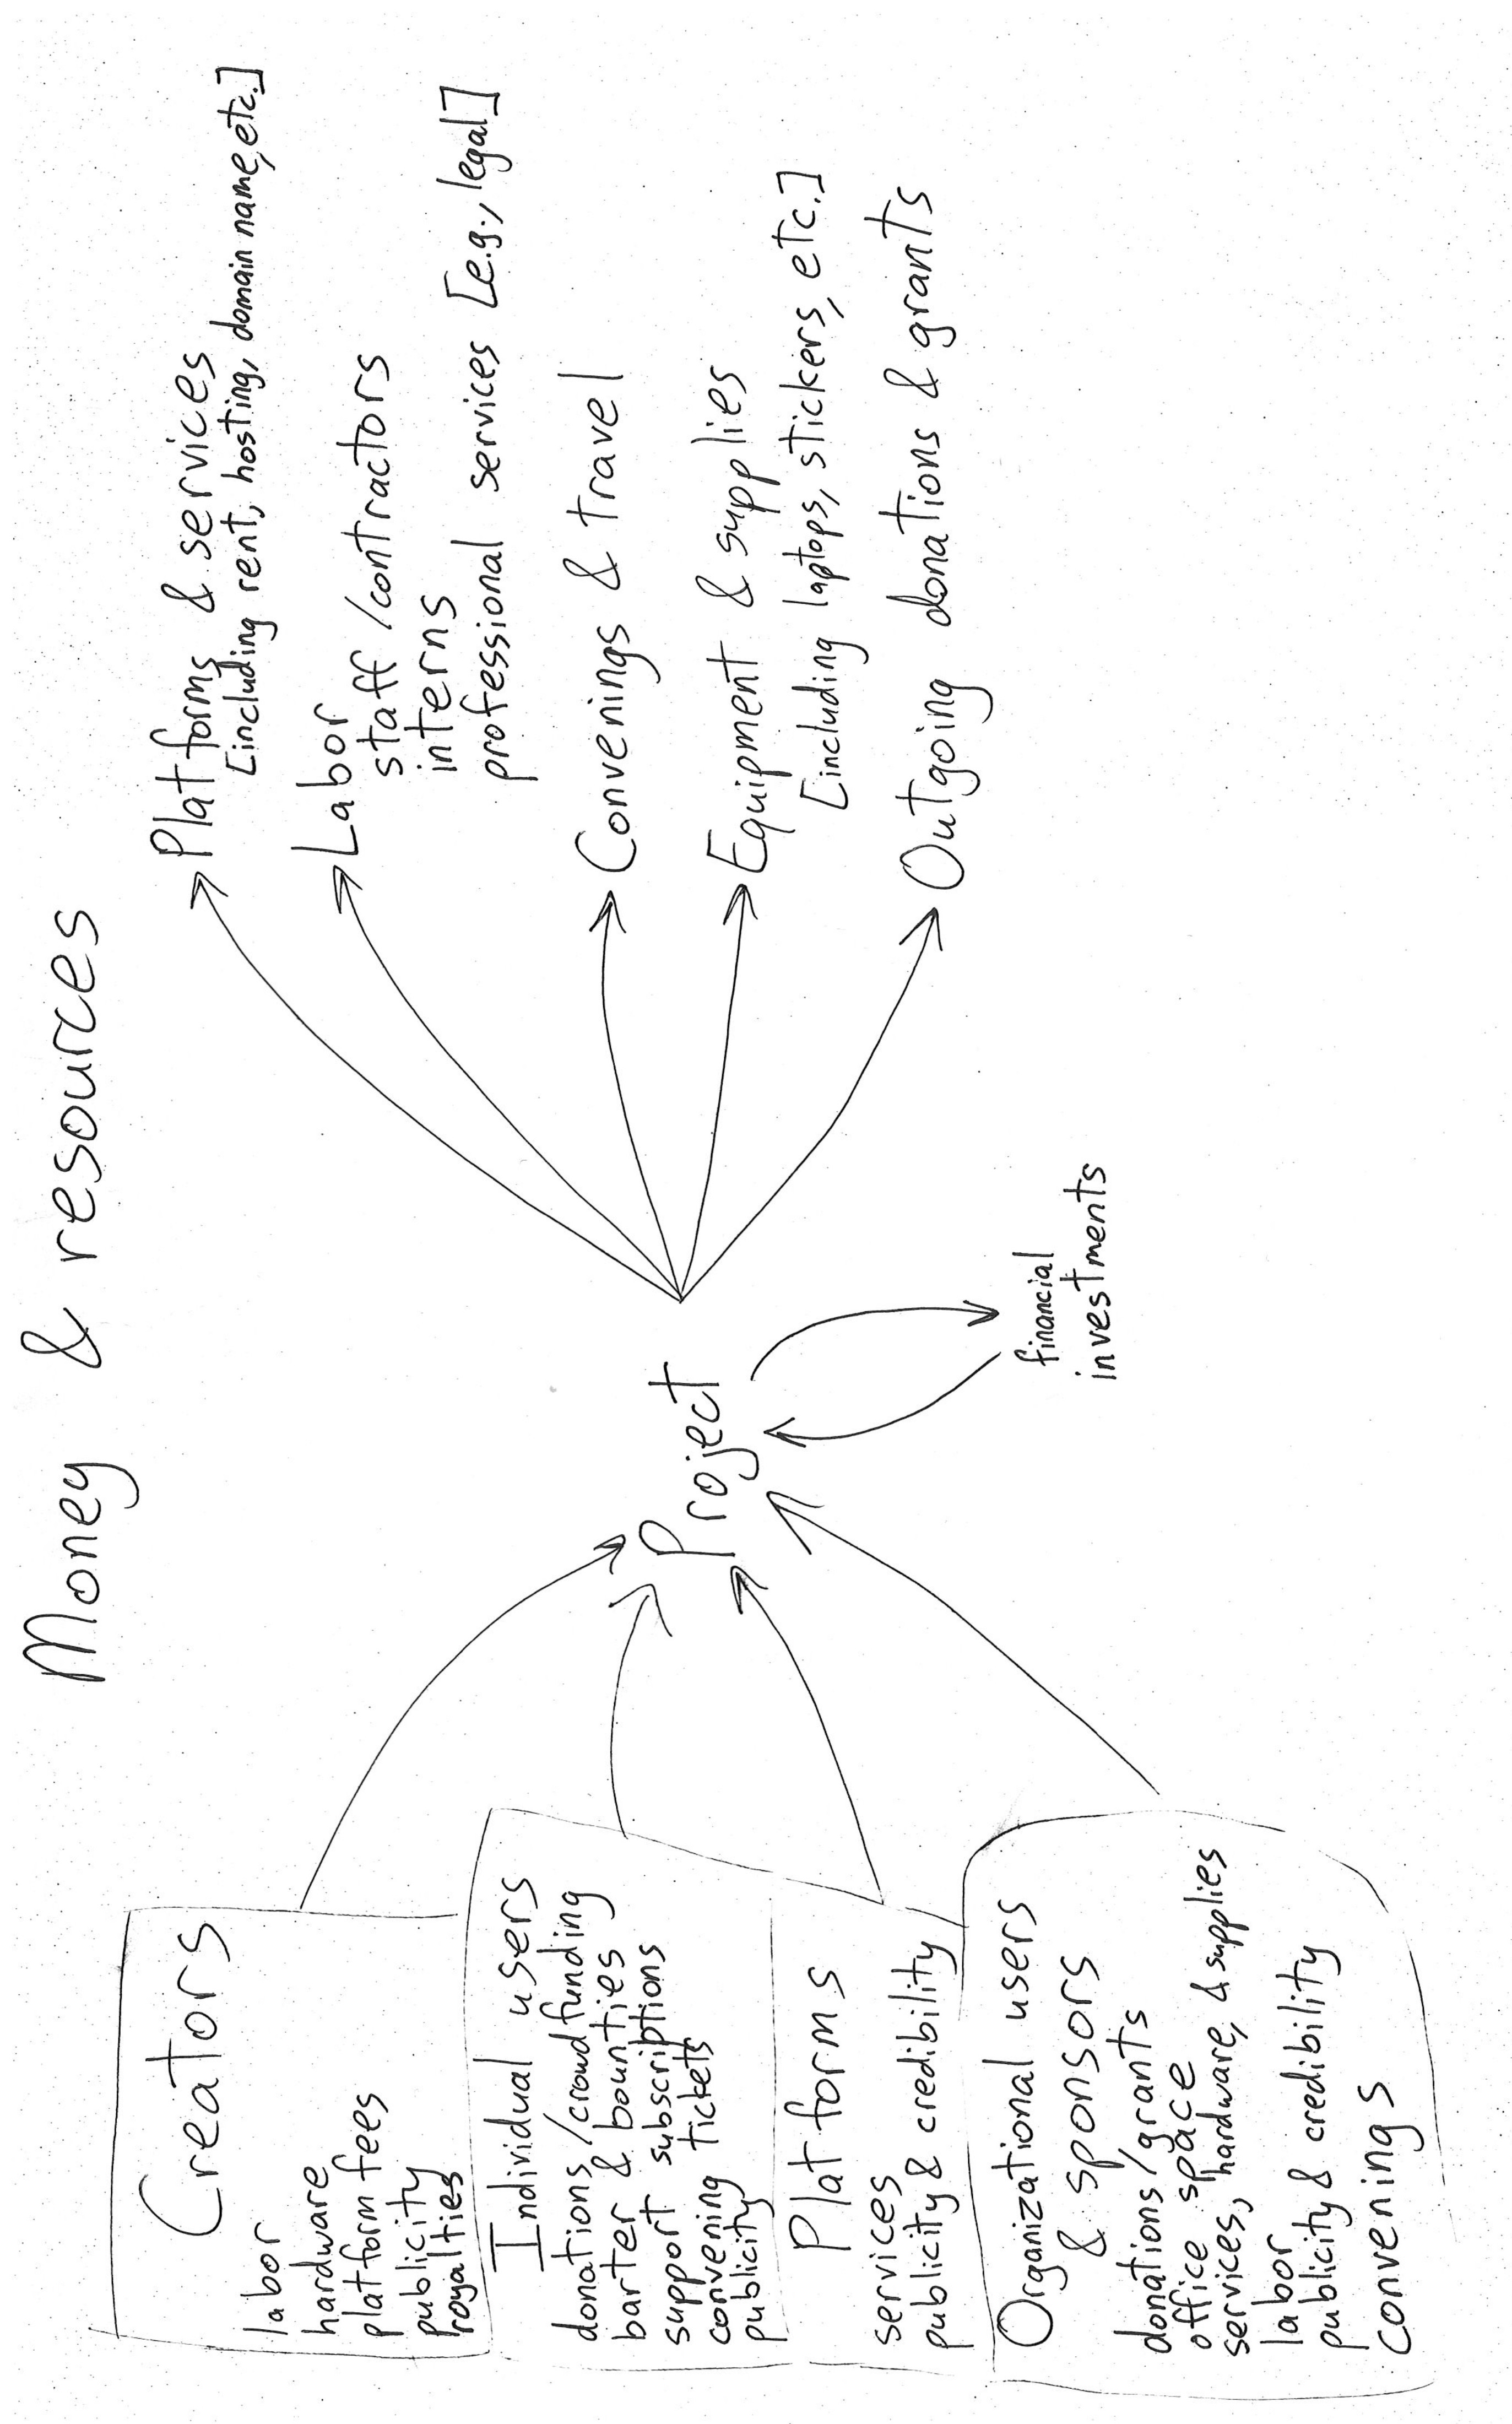 Money & resources
Creators
labor
hardware
platform fees
publicity
royalties
Individual users
donations/crowdfunding
barter & bounties
support subscriptions
convening tickets
publicity
Platforms
services
publicity & credibility
Organizational users
& sponsors
donations/grants
office space
services, hardware, & supplies
labor
publicity & credibility
convenings
Project
financial
investments
Platforms & services
[including rent, hosting, domain name, etc.]
Labor
staff/contractors
interns
professional services [e.g., legal]
Convenings & travel
Equipment & supplies
[including laptops, stickers, etc.]
Outgoing donations & grants